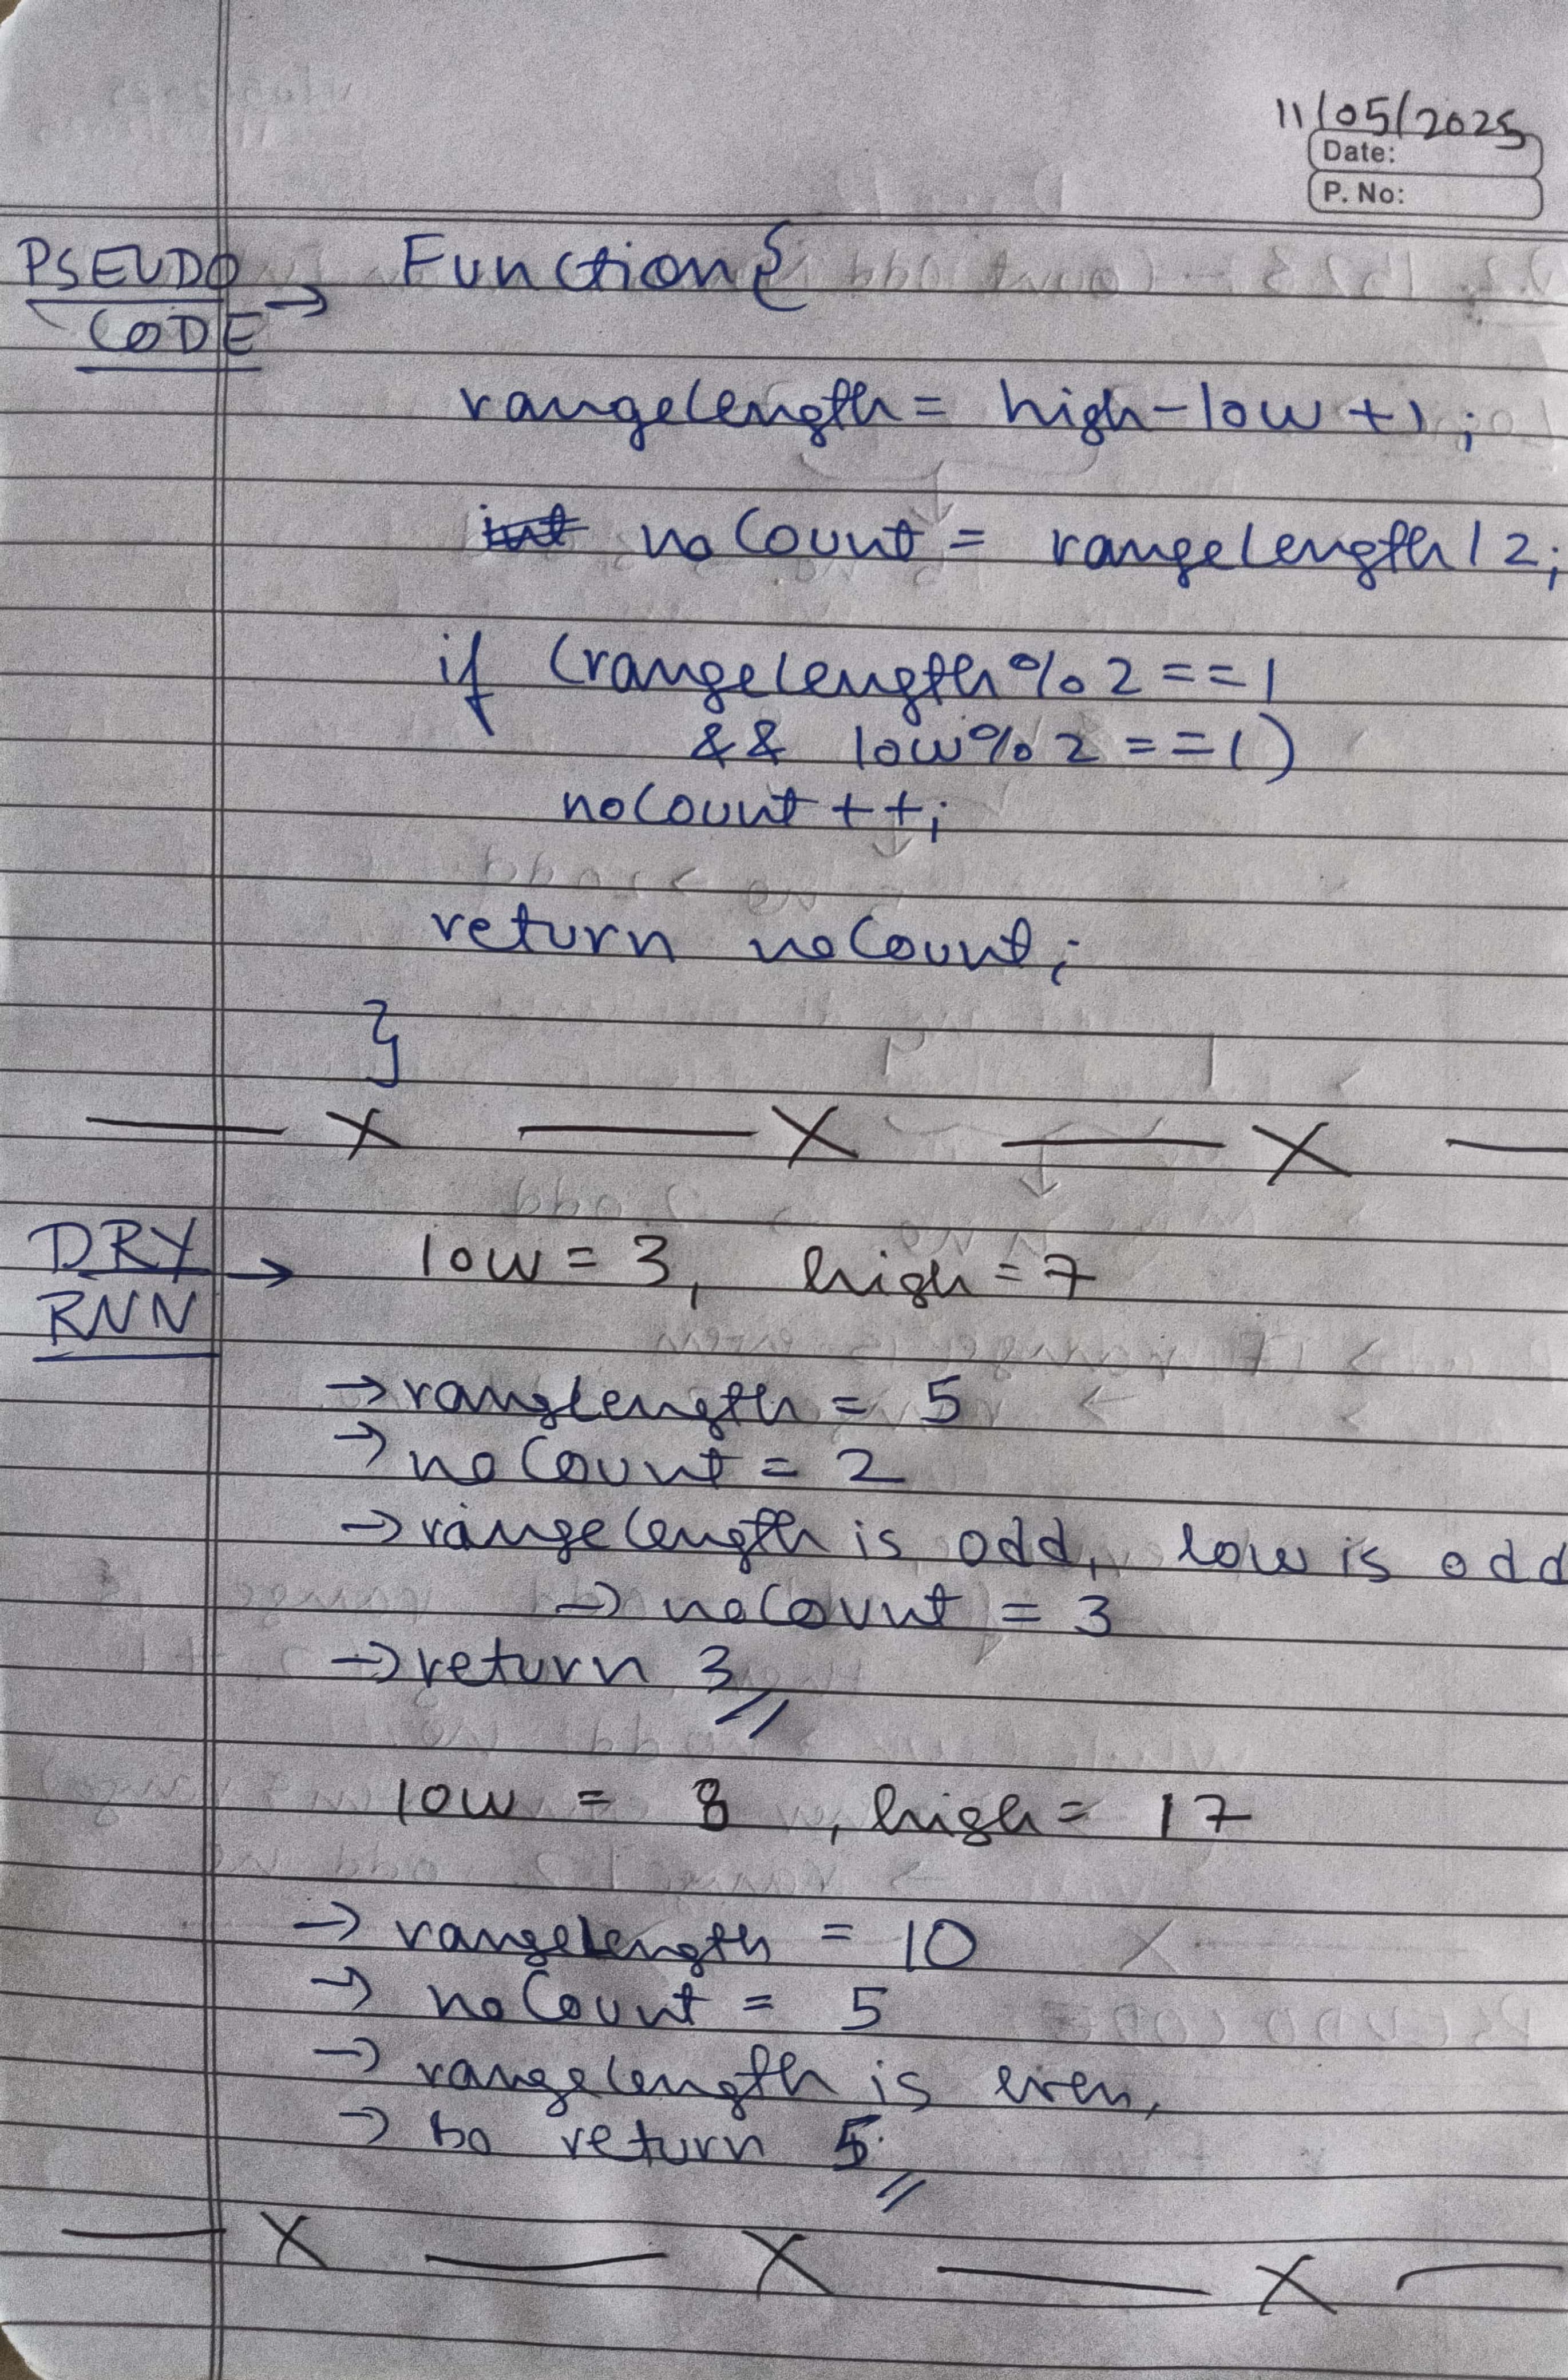 11/05/2025
Date:
P. No:
PSEUDO
CODE →
Function{
rangelength = high-low+1;
int noCount = rangelength/2;
if (rangelength%2==1
&& low%2==1)
noCount++;
return noCount;
}
— X — X — X —
DRY
RUN →
low = 3, high = 7
→ ranglength = 5
→ noCount = 2
→ rangelength is odd, low is odd
→ noCount = 3
→ return 3
low = 8, high = 17
→ rangelength = 10
→ noCount = 5
→ rangelength is even,
→ so return 5
— X — X — X —